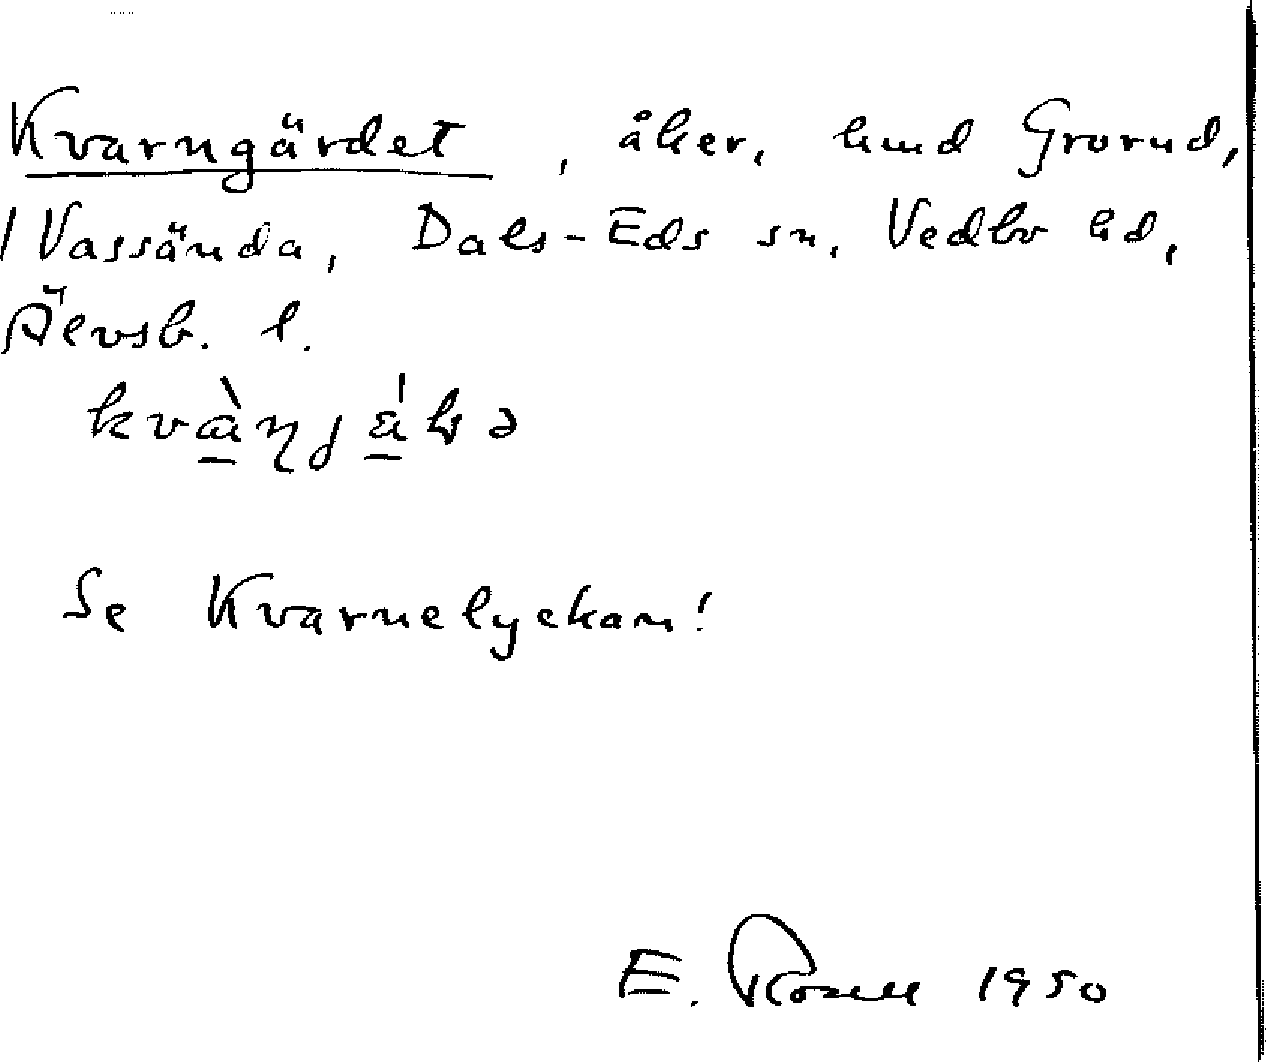 Kvarngärdet, åker, hmd Grorud,
/Vassända, Dals-Eds sn, Vedbo hd,
Älvsb. l.
Se Kvarnelyckan!
E. Rosell 1950